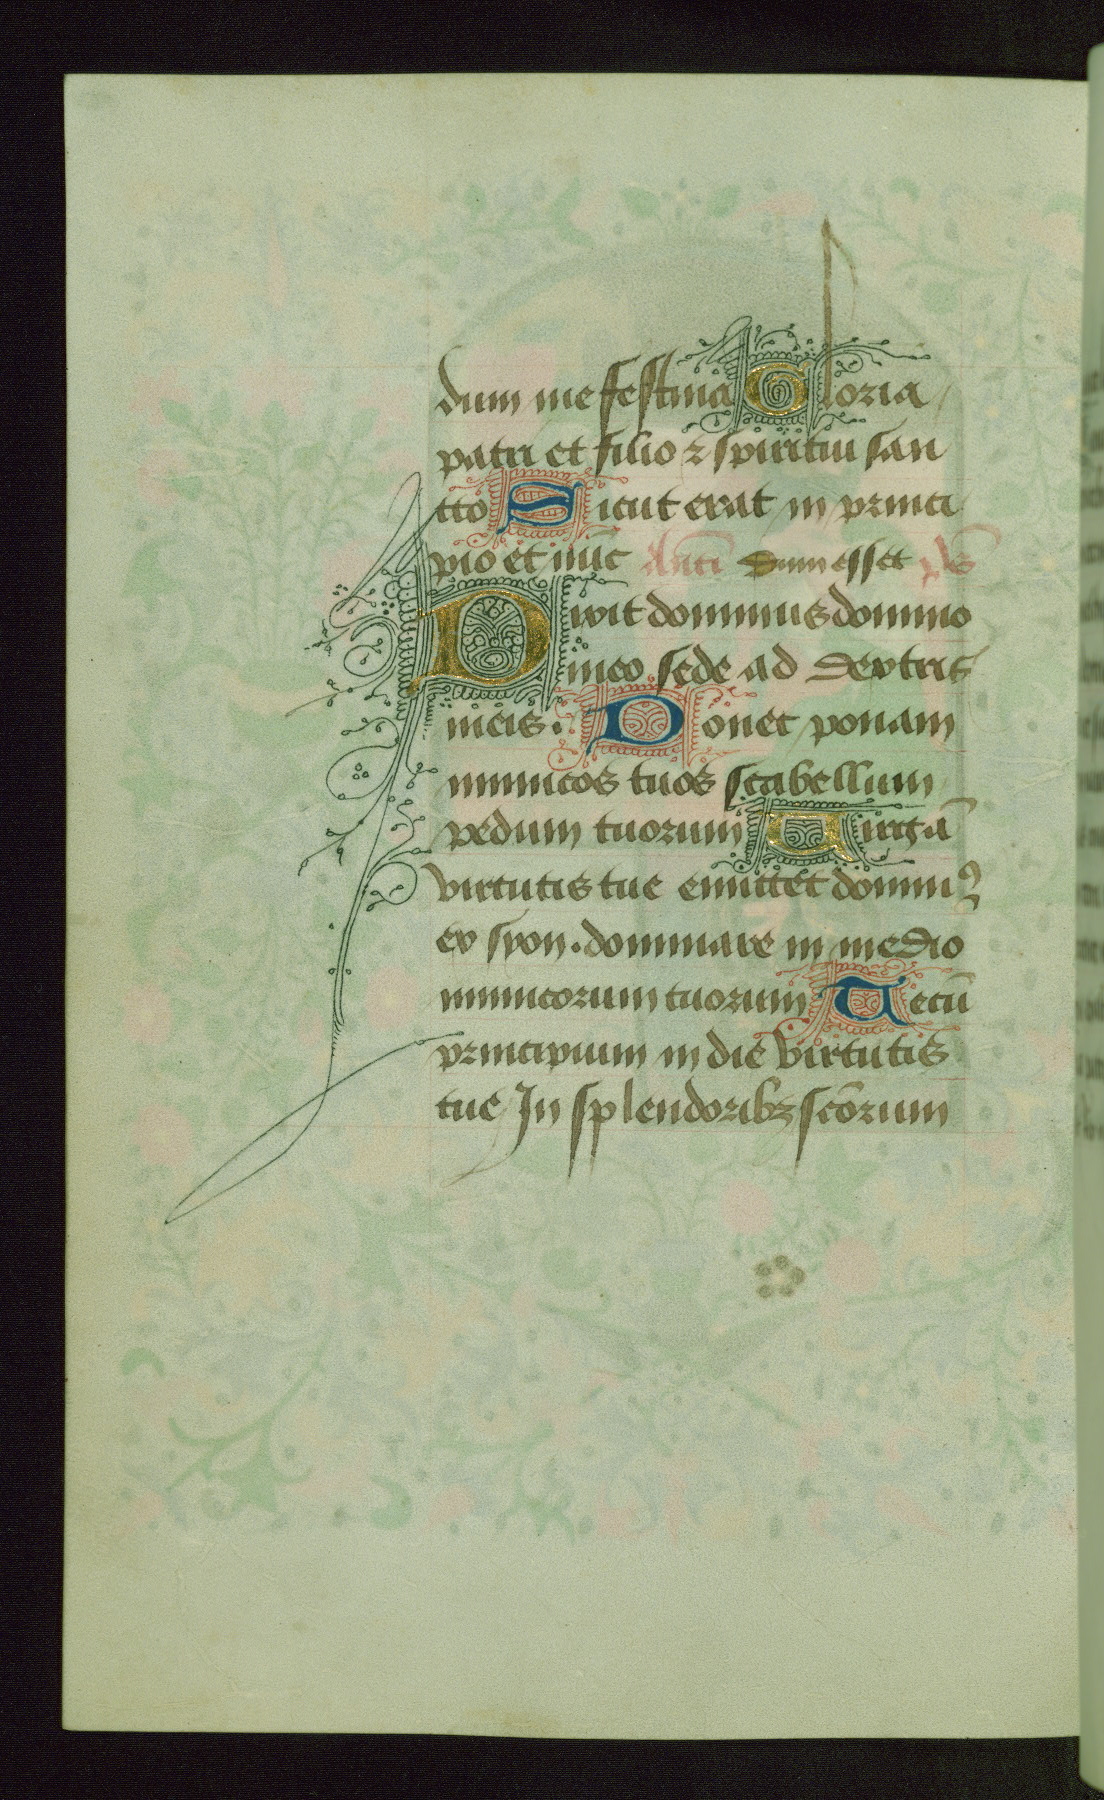 dum me festina Gloria
patri et filio ⁊ spiritui san
cto Sicut erat in princi
pio et nūc Antī Dum esset pˢ
Dixit dominus domino
meo sede ad dextris
meis. Donec ponam
inimicos tuos scabellum
pedum tuorum Uirgā
virtutis tue emittet dominꝰ
ex syon. dominare in medio
inimicorum tuorum Tecū
principium in die virtutis
tue In splendoribꝫ scōrum